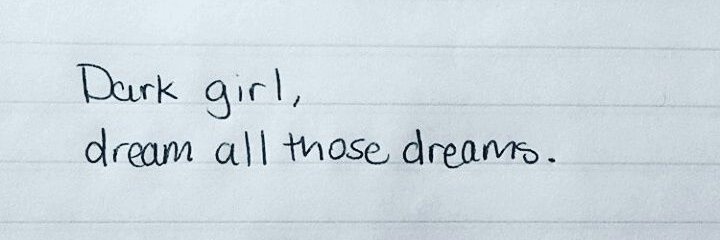 Dark girl,
dream all those dreams.